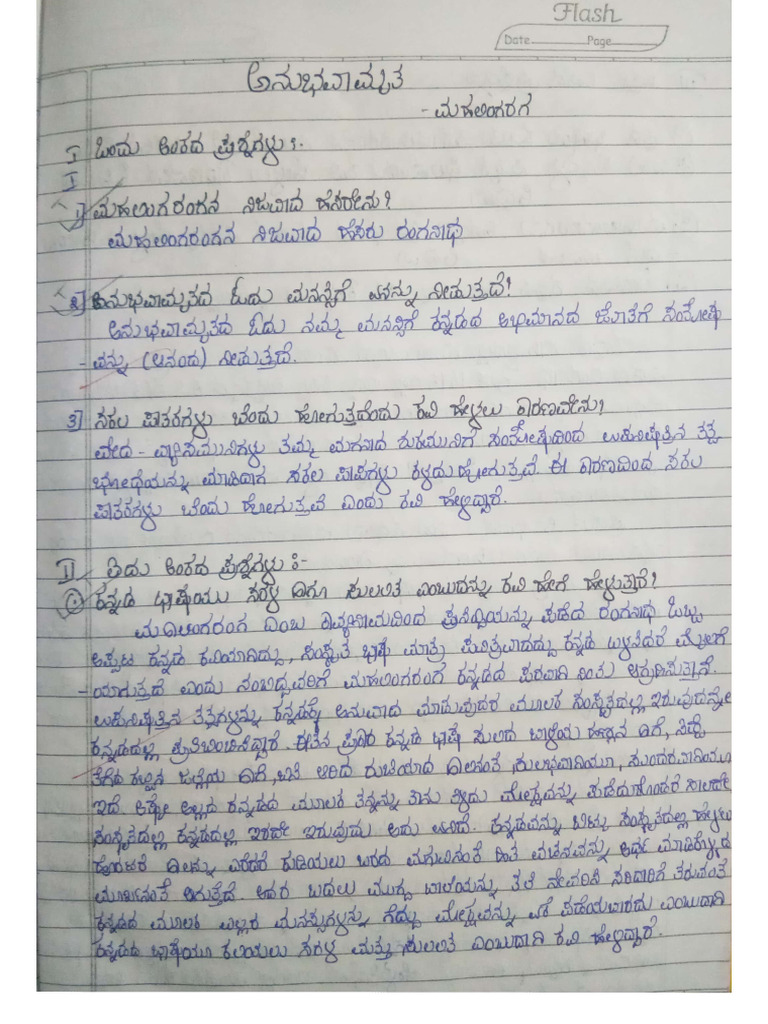 Flash
Date Page
ಅನುಭವಾಮೃತ
- ಮಹಲಿಂಗರಂಗ
I ಒಂದು ಅಂಕದ ಪ್ರಶ್ನೆಗಳು :-
I
1) ಮಹಲಿಂಗರಂಗನ ನಿಜವಾದ ಹೆಸರೇನು?
ಮಹಲಿಂಗರಂಗನ ನಿಜವಾದ ಹೆಸರು ರಂಗನಾಥ
2) ಅನುಭವಾಮೃತದ ಓದು ಮನಸ್ಸಿಗೆ ಏನನ್ನು ನೀಡುತ್ತದೆ?
ಅನುಭವಾಮೃತದ ಓದು ನಮ್ಮ ಮನಸ್ಸಿಗೆ ಕನ್ನಡದ ಅಭಿಮಾನದ ಜೊತೆಗೆ ಸಂತೋಷ
- ವನ್ನು (ಆನಂದ) ನೀಡುತ್ತದೆ.
3) ಸಕಲ ಪಾತಕಗಳು ಬೆಂದು ಹೋಗುತ್ತವೆಂದು ಕವಿ ಹೇಳಲು ಕಾರಣವೇನು?
ವೇದ - ವ್ಯಾಸಮುನಿಗಳು ತಮ್ಮ ಮಗನಾದ ಶುಕಮುನಿಗೆ ಸಂತೋಷದಿಂದ ಉಪನಿಷತ್ತಿನ ತತ್ವ
ಭೋಧೆಯನ್ನು ಮಾಡಿದಾಗ ಸಕಲ ಪಾಪಗಳು ಕಳೆದುಹೋಗುತ್ತವೆ. ಈ ಕಾರಣದಿಂದ ಸಕಲ
ಪಾತಕಗಳು ಬೆಂದು ಹೋಗುತ್ತವೆ ಎಂದು ಕವಿ ಹೇಳಿದ್ದಾರೆ.
II ಐದು ಅಂಕದ ಪ್ರಶ್ನೆಗಳು :-
ಕನ್ನಡ ಭಾಷೆಯು ಸರಳ ಹಾಗೂ ಸುಲಲಿತ ಎಂಬುದನ್ನು ಕವಿ ಹೇಗೆ ಹೇಳುತ್ತಾರೆ?
ಮಹಲಿಂಗರಂಗ ಎಂಬ ಕಾವ್ಯನಾಮದಿಂದ ಪ್ರಸಿದ್ಧಿಯನ್ನು ಪಡೆದ ರಂಗನಾಥ ಒಬ್ಬ
ಅಪ್ಪಟ ಕನ್ನಡ ಕವಿಯಾಗಿದ್ದು, ಸಂಸ್ಕೃತ ಭಾಷೆ ಮಾತ್ರ ಪವಿತ್ರವಾದದ್ದು ಕನ್ನಡ ಬಳಸಿದರೆ ಮೈಲಿಗೆ
- ಯಾಗುತ್ತದೆ ಎಂದು ನಂಬಿದ್ದವರಿಗೆ ಮಹಲಿಂಗರಂಗ ಕನ್ನಡದ ಪರವಾಗಿ ನಿಂತು ಉತ್ತರಿಸುತ್ತಾನೆ.
ಉಪನಿಷತ್ತಿನ ತತ್ವಗಳನ್ನು ಕನ್ನಡಕ್ಕೆ ಅನುವಾದ ಮಾಡುವುದರ ಮೂಲಕ ಸಂಸ್ಕೃತದಲ್ಲಿ ಇರುವುದನ್ನೇ
ಕನ್ನಡದಲ್ಲಿ ಪ್ರತಿಬಿಂಬಿಸಿದ್ದಾರೆ. ಈತನ ಪ್ರಕಾರ ಕನ್ನಡ ಭಾಷೆ ಸುಲಿದ ಬಾಳೆಯ ಹಣ್ಣಿನ ಹಾಗೆ, ಸಿಪ್ಪೆ
ತೆಗೆದ ಕಬ್ಬಿನ ಜಲ್ಲೆಯ ಹಾಗೆ, ಬಿಸಿ ಆರಿದ ರುಚಿಯಾದ ಹಾಲಿನಂತೆ, ಸುಲಭವಾಗಿಯೂ, ಸುಂದರವಾಗಿಯೂ
ಇದೆ. ಅಷ್ಟೇ ಅಲ್ಲದೆ ಕನ್ನಡದ ಮೂಲಕ ತನ್ನನ್ನು ತಾನು ತಿಳಿದು ಮೋಕ್ಷವನ್ನು ಪಡೆದುಕೊಂಡರೆ ಸಾಲದೇ
ಸಂಸ್ಕೃತದಲ್ಲಿ ಕನ್ನಡದಲ್ಲಿ ಇರದೇ ಇರುವುದು ಏನು ಇದೆ. ಕನ್ನಡವನ್ನು ಬಿಟ್ಟು ಸಂಸ್ಕೃತದಲ್ಲಿ ಹೇಳಲು
ಹೊರಟರೆ ಹಾಲನ್ನು ಎರೆದರೆ ಕುಡಿಯಲು ಬರದ ಮಗುವಿನಂತೆ ಹಿತ ವಚನವನ್ನು ಅರ್ಥ ಮಾಡಿಕೊಳ್ಳದ
ಮೂರ್ಖನಂತೆ ಆಗುತ್ತದೆ. ಅದರ ಬದಲು ಮುಗ್ಧ ಬಾಲೆಯನ್ನು ತಲೆ ನೇವರಿಸಿ ಸರಿದಾರಿಗೆ ತರುವಂತೆ
ಕನ್ನಡದ ಮೂಲಕ ಎಲ್ಲರ ಮನಸ್ಸುಗಳನ್ನು ಗೆದ್ದು ಮೋಕ್ಷವನ್ನು ಏಕೆ ಪಡೆಯಬಾರದು ಎಂಬುದಾಗಿ
ಕನ್ನಡದ ಭಾಷೆಯೂ ಕಲಿಯಲು ಸರಳ ಮತ್ತು ಸುಲಲಿತ ಎಂಬುದಾಗಿ ಕವಿ ಹೇಳಿದ್ದಾರೆ.